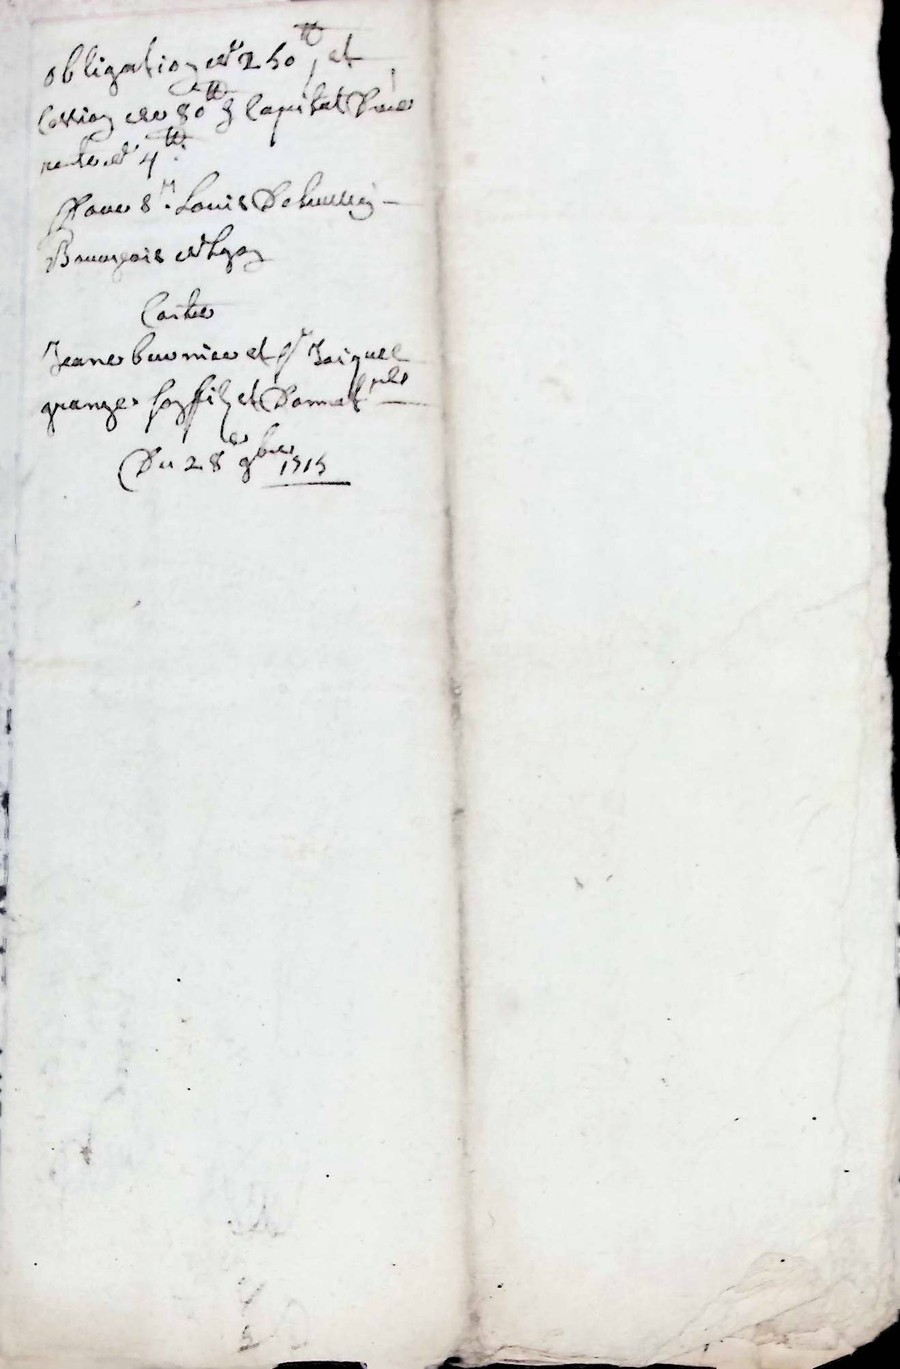 obligation de 250 tt, et
Cession de 80 tt de Capital D'une
rente de 4 tt.
Pour Sr. Louis
Bourgeois de Lyon
Contre
Jeanne et Sr Jacques
grange son filz et Donnat.re
Du 28e 9bre 1515